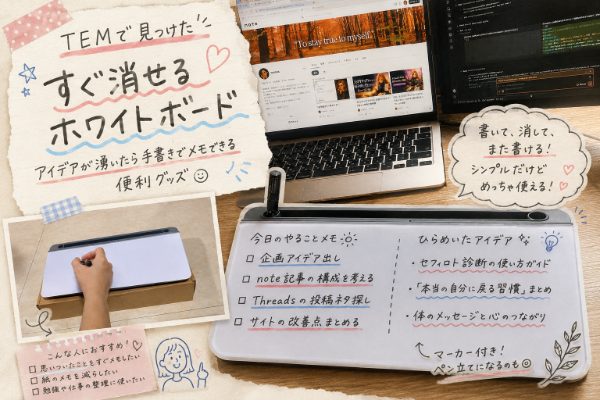 TEMで見つけた
すぐ消せる
ホワイトボード
アイデアが湧いたら手書きでメモできる
便利グッズ
note
"Yo stay true to myself."
書いて、消して、
また書ける!
シンプルだけど
めっちゃ使える!
今日のやることメモ
□ 企画アイデア出し
□ note記事の構成を考える
□ Threadsの投稿ネタ探し
□ サイトの改善点まとめる
ひらめいたアイデア
・セフィロト診断の使い方ガイド
・「本当の自分に戻る習慣」まとめ
・体のメッセージと心のつながり
マーカー付き!
ペン立てになるのも
こんな人におすすめ!
□ 思いついたことをすぐメモしたい
□ 紙のメモを減らしたい
□ 勉強や仕事の整理に使いたい